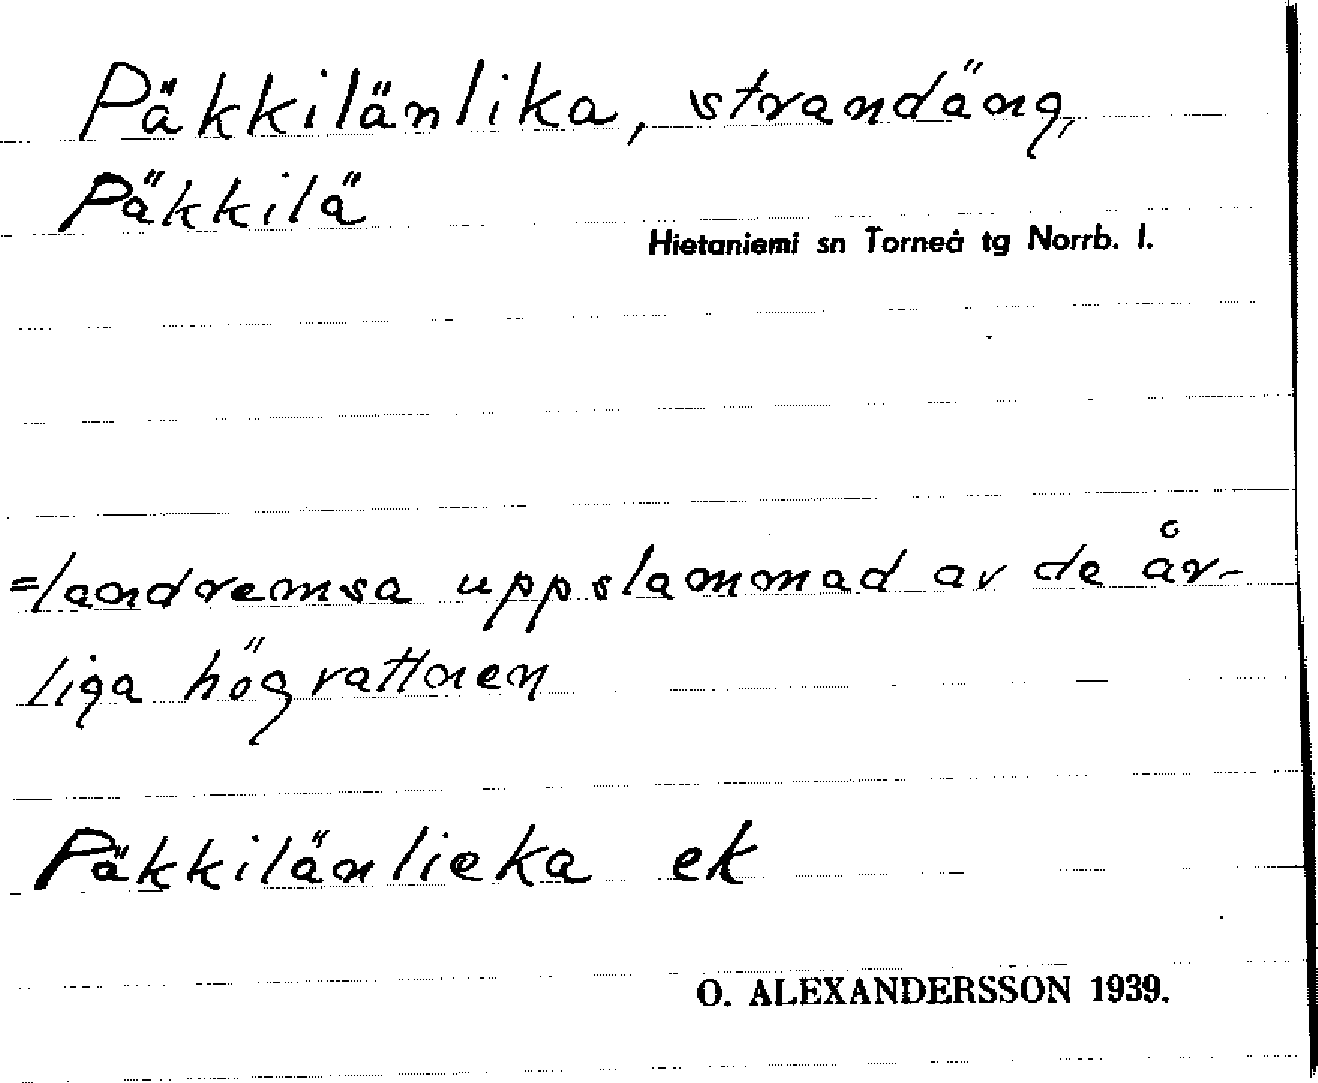 Päkkilänlika, strandäng,
Päkkilä
Hietaniemi sn Torneå tg Norrb. l.
=landremsa uppslammad av de år-
liga högvattnen
Päkkilänlieka ek
O. ALEXANDERSSON 1939.